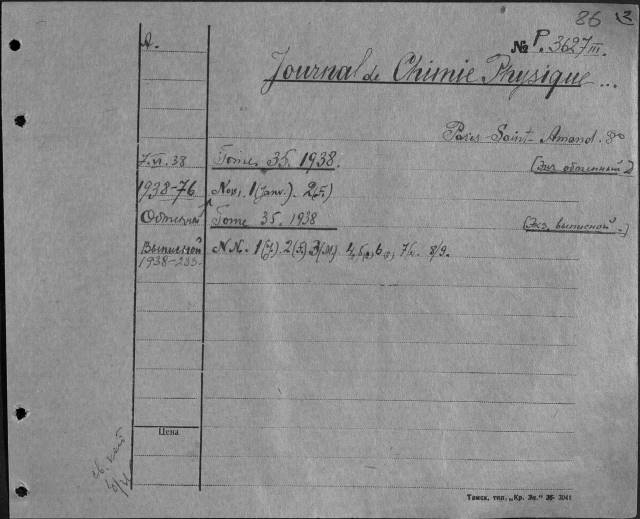 86 3
№ P. 3627 III.
A.
Journal de Chimie Physique...
Paris-Saint-Amand. 8°
7.VI.38 Tome 35. 1938. (Экз. обменный)
1938-76 Nos. 1 (Janv.). 2 (F.)
Обменный Tome 35. 1938 (Экз. выписной.)
Выписной N.N. 1 (J.) 2 (F.) 3 (M.) 8/9.
1938-233-
Цена
Томск, тип. „Кр. Зн." 36- 3041